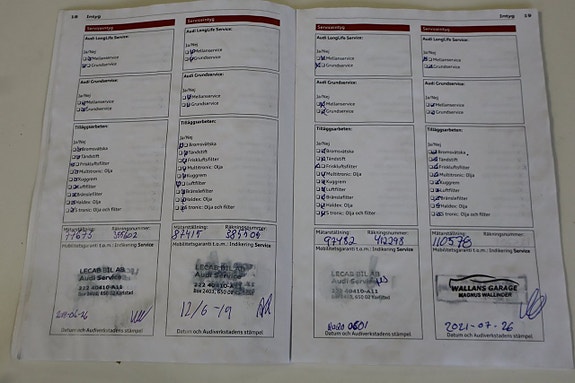 18 Intyg
Serviceintyg
Audi LongLife Service:
Ja/Nej
Mellanservice
Grundservice
Audi Grundservice:
Ja/Nej
Mellanservice
Grundservice
Tilläggsarbeten:
Ja/Nej
Bromsvätska
Tändstift
Friskluftsfilter
Multitronic: Olja
Kuggrem
Luftfilter
Bränslefilter
Haldex: Olja
S tronic: Olja och filter
Mätarställning: Räkningsnummer:
77675
Mobilitetsgaranti t.o.m.: Indikering Service
LECAB BIL AB
Audi Service
222 40410-A11
Datum och Audiverkstadens stämpel
Serviceintyg
Audi LongLife Service:
Ja/Nej
Mellanservice
Grundservice
Audi Grundservice:
Ja/Nej
Mellanservice
Grundservice
Tilläggsarbeten:
Ja/Nej
Bromsvätska
Tändstift
Friskluftsfilter
Multitronic: Olja
Kuggrem
Luftfilter
Bränslefilter
Haldex: Olja
S tronic: Olja och filter
Mätarställning: Räkningsnummer:
87415
Mobilitetsgaranti t.o.m.: Indikering Service
LECAB BIL AB
Audi Service
222 40410-A11
Box 2403, 650 02 Karlstad
12/6 -19
Datum och Audiverkstadens stämpel
Intyg 19
Serviceintyg
Audi LongLife Service:
Ja/Nej
Mellanservice
Grundservice
Audi Grundservice:
Ja/Nej
Mellanservice
Grundservice
Tilläggsarbeten:
Ja/Nej
Bromsvätska
Tändstift
Friskluftsfilter
Multitronic: Olja
Kuggrem
Luftfilter
Bränslefilter
Haldex: Olja
S tronic: Olja och filter
Mätarställning: Räkningsnummer:
97482 412298
Mobilitetsgaranti t.o.m.: Indikering Service
LECAB BIL AB
Audi Service
222 40410-A11
Box 2403, 650 02 Karlstad
Datum och Audiverkstadens stämpel
Serviceintyg
Audi LongLife Service:
Ja/Nej
Mellanservice
Grundservice
Audi Grundservice:
Ja/Nej
Mellanservice
Grundservice
Tilläggsarbeten:
Ja/Nej
Bromsvätska
Tändstift
Friskluftsfilter
Multitronic: Olja
Kuggrem
Luftfilter
Bränslefilter
Haldex: Olja
S tronic: Olja och filter
Mätarställning: Räkningsnummer:
110578
Mobilitetsgaranti t.o.m.: Indikering Service
WALLANS GARAGE
MAGNUS WALLINDER
2021-07-26
Datum och Audiverkstadens stämpel